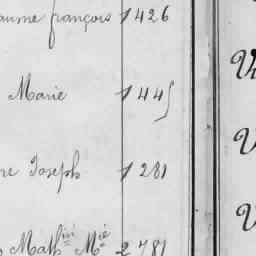 aume françois 1426
Marie 1445
re Joseph 1281
Math Mie 2781